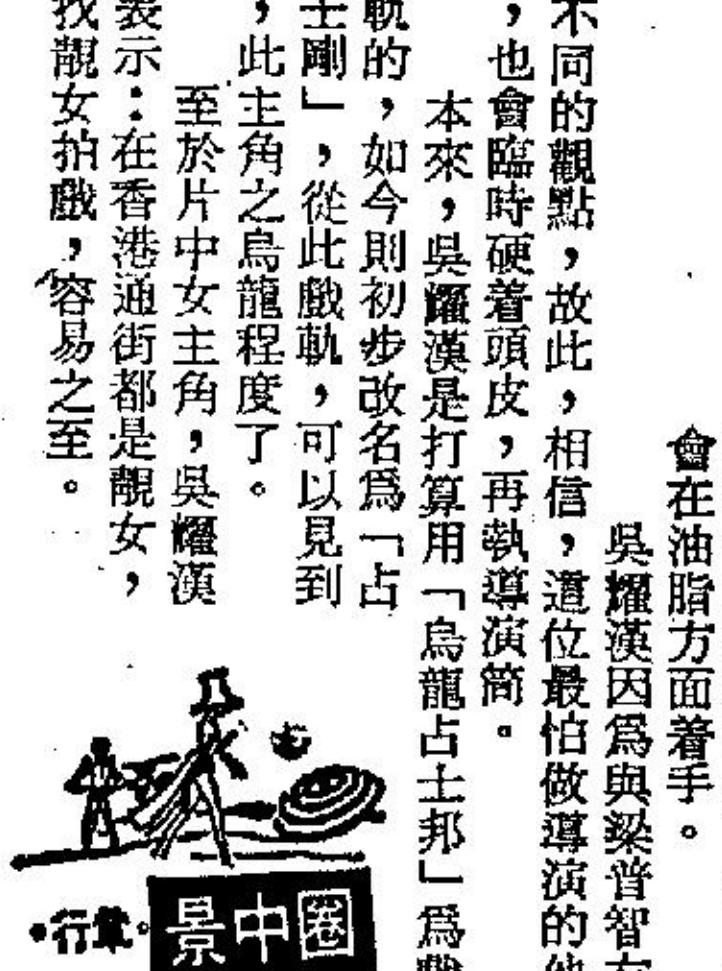 會在油脂方面着手。
吳耀漢因爲與梁普智
不同的觀點，故此，相信，這位最怕做導演的他
，也會臨時硬着頭皮，再執導演筒。
本來，吳耀漢是打算用「烏龍占士邦」爲戲
軌的，如今則初步改名爲「占
士剛」，從此戲軌，可以見到
，此主角之烏龍程度了。
至於片中女主角，吳耀漢
表示：在香港通街都是靚女，
找靚女拍戲，容易之至。
圈中景
•行軍•